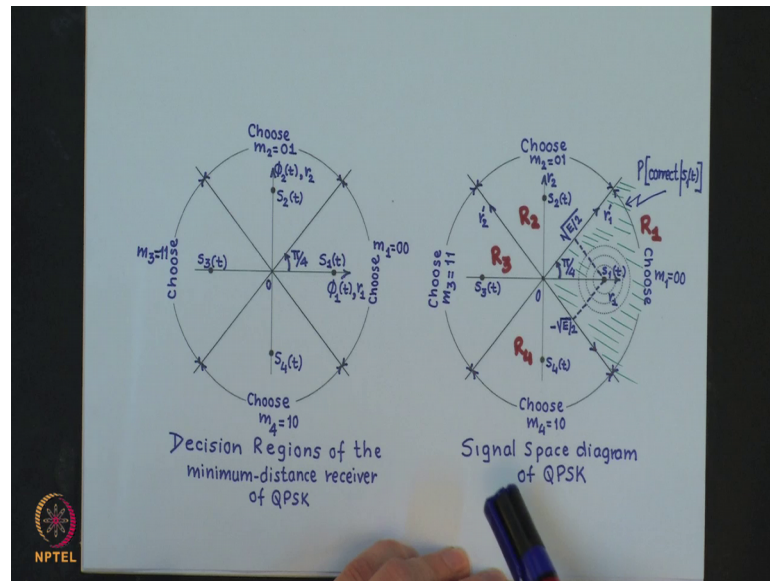 Choose
m₂=01
ϕ₂(t), r₂
S₂(t)
m₃=11
Choose
S₃(t)
π/4
S₁(t)
0
ϕ₁(t), r₁
Choose m₁=00
S₄(t)
Choose
m₄=10
Decision Regions of the
minimum-distance receiver
of QPSK
Choose
m₂=01
P[correct|s₁(t)]
r₂
r₂'
S₂(t)
R₂
√E/2
r₁'
R₁
Choose
m₃=11
R₃
S₃(t)
π/4
S₁(t)
0
Choose
m₁=00
-√E/2
R₄
S₄(t)
Choose
m₄=10
Signal Space diagram
of QPSK
NPTEL